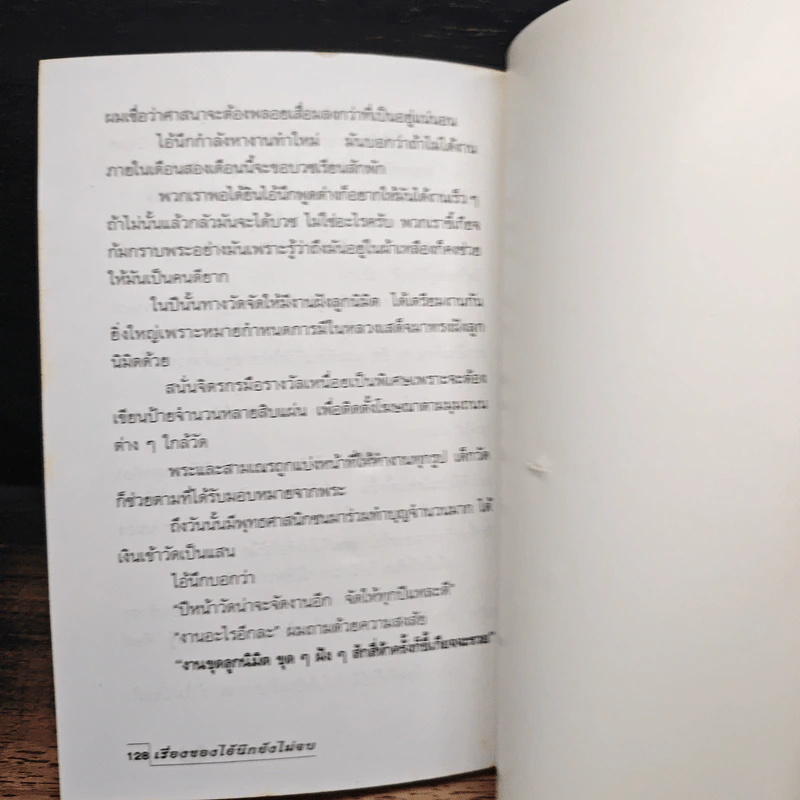 ผมเชื่อว่าศาสนาจะต้องพลอยเสื่อมลงกว่าที่เป็นอยู่แน่นอน
ไอ้นึกกำลังหางานทำใหม่ มันบอกว่าถ้าไม่ได้งาน
ภายในเดือนสองเดือนนี้จะขอบวชเรียนสักพัก
พวกเราพอได้ยินไอ้นึกพูดต่างก็อยากให้มันได้งานเร็ว ๆ
ถ้าไม่นั้นแล้วกลัวมันจะได้บวช ไม่ใช่อะไรครับ พวกเราขี้เกียจ
ก้มกราบพระอย่างมันเพราะรู้ว่าถึงมันอยู่ในผ้าเหลืองก็คงช่วย
ให้มันเป็นคนดียาก
ในปีนั้นทางวัดจัดให้มีงานฝังลูกนิมิต ได้เตรียมงานกัน
ยิ่งใหญ่เพราะหมายกำหนดการมีในหลวงเสด็จมาทรงฝังลูก
นิมิตด้วย
สนั่นจิตรกรมือรางวัลเหนื่อยเป็นพิเศษเพราะจะต้อง
เขียนป้ายจำนวนหลายสิบแผ่น เพื่อติดตั้งโฆษณาตามมุมถนน
ต่าง ๆ ใกล้วัด
พระและสามเณรถูกแบ่งหน้าที่ให้ทำงานทุกรูป เด็กวัด
ก็ช่วยตามที่ได้รับมอบหมายจากพระ
ถึงวันนั้นมีพุทธศาสนิกชนมาร่วมทำบุญจำนวนมาก ได้
เงินเข้าวัดเป็นแสน
ไอ้นึกบอกว่า
“ปีหน้าวัดน่าจะจัดงานอีก จัดให้ทุกปีแหละดี”
“งานอะไรอีกละ” ผมถามด้วยความสงสัย
“งานขุดลูกนิมิต ขุด ๆ ฝัง ๆ สักสี่ห้าครั้งก็ขี้เกียจจะรวย”
128 เรื่องของไอ้นึกยังไม่จบ